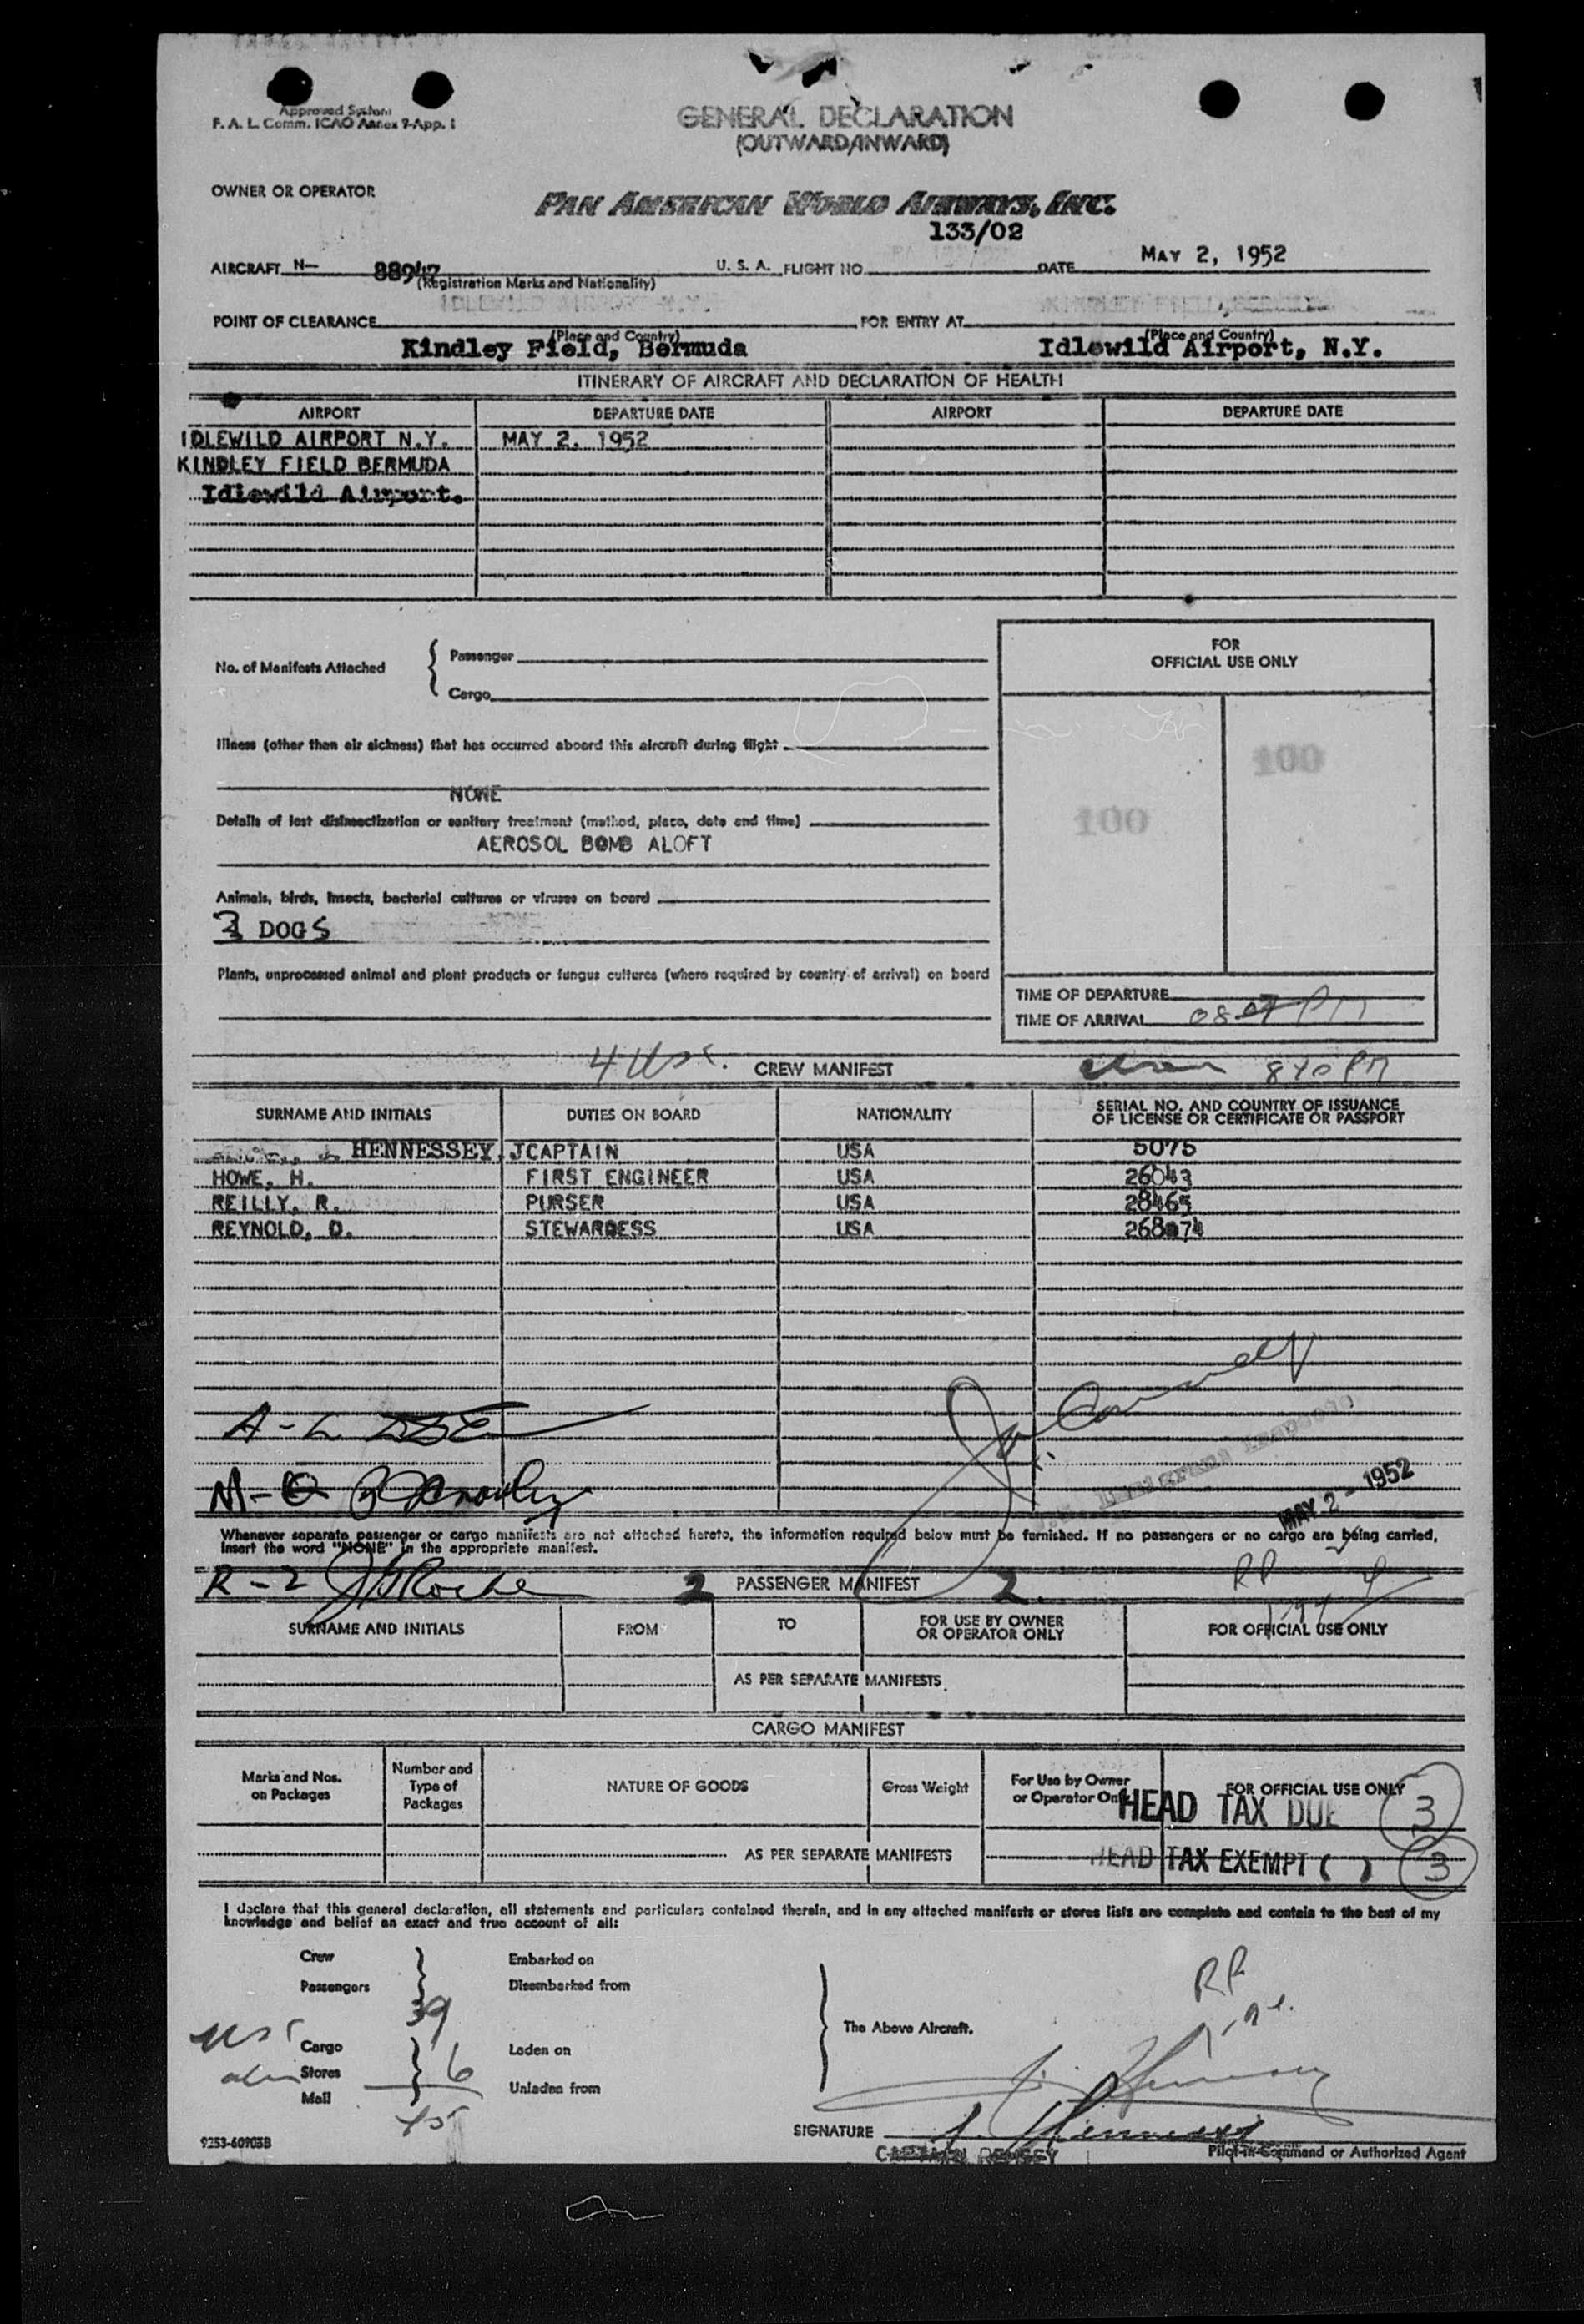 Approved System
F. A. L. Comm. ICAO Annex 9-App. 1
GENERAL DECLARATION
(OUTWARD/INWARD)
OWNER OR OPERATOR
PAN AMERICAN WORLD AIRWAYS, INC.
133/02
AIRCRAFT N- 88947 U. S. A. FLIGHT NO. DATE MAY 2, 1952
(Registration Marks and Nationality)
IDLEWILD AIRPORT N.Y. KINDLEY FIELD, BERMUDA
POINT OF CLEARANCE FOR ENTRY AT
(Place and Country) (Place and Country)
Kindley Field, Bermuda Idlewild Airport, N.Y.
ITINERARY OF AIRCRAFT AND DECLARATION OF HEALTH
AIRPORT DEPARTURE DATE AIRPORT DEPARTURE DATE
IDLEWILD AIRPORT N.Y. MAY 2, 1952
KINDLEY FIELD BERMUDA
Idlewild Airport.
No. of Manifests Attached
Passenger
Cargo
FOR
OFFICIAL USE ONLY
Illness (other than air sickness) that has occurred aboard this aircraft during flight
100
NONE
100
Details of last disinsectization or sanitary treatment (method, place, date and time)
AEROSOL BOMB ALOFT
Animals, birds, insects, bacterial cultures or viruses on board
DOGS
Plants, unprocessed animal and plant products or fungus cultures (where required by country of arrival) on board
TIME OF DEPARTURE
TIME OF ARRIVAL 0807 PM
4 USC. CREW MANIFEST 840 PM
SURNAME AND INITIALS DUTIES ON BOARD NATIONALITY SERIAL NO. AND COUNTRY OF ISSUANCE
OF LICENSE OR CERTIFICATE OR PASSPORT
HENNESSEY, J CAPTAIN USA 5075
HOWE, H. FIRST ENGINEER USA 26043
REILLY, R. PURSER USA 28465
REYNOLD, D. STEWARDESS USA
A-L
MAY 2 - 1952
Whenever separate passenger or cargo manifests are not attached hereto, the information required below must be furnished. If no passengers or no cargo are being carried,
insert the word "NONE" in the appropriate manifest.
R-2 J Roche 2 PASSENGER MANIFEST 2. RP
SURNAME AND INITIALS FROM TO FOR USE BY OWNER
OR OPERATOR ONLY FOR OFFICIAL USE ONLY
AS PER SEPARATE MANIFESTS
CARGO MANIFEST
Marks and Nos.
on Packages Number and
Type of
Packages NATURE OF GOODS Gross Weight For Use by Owner
or Operator Only FOR OFFICIAL USE ONLY
HEAD TAX DUE 3
AS PER SEPARATE MANIFESTS HEAD TAX EXEMPT ( ) 3
I declare that this general declaration, all statements and particulars contained therein, and in any attached manifests or stores lists are complete and contain to the best of my
knowledge and belief an exact and true account of all:
Crew Embarked on
Passengers Disembarked from
RP
39
USC
Cargo Laden on The Above Aircraft.
Stores 6
Mail Unladen from
45
J. Hennessey
SIGNATURE J. Hennessey
9253-60905B CAPTAIN Pilot-in-Command or Authorized Agent